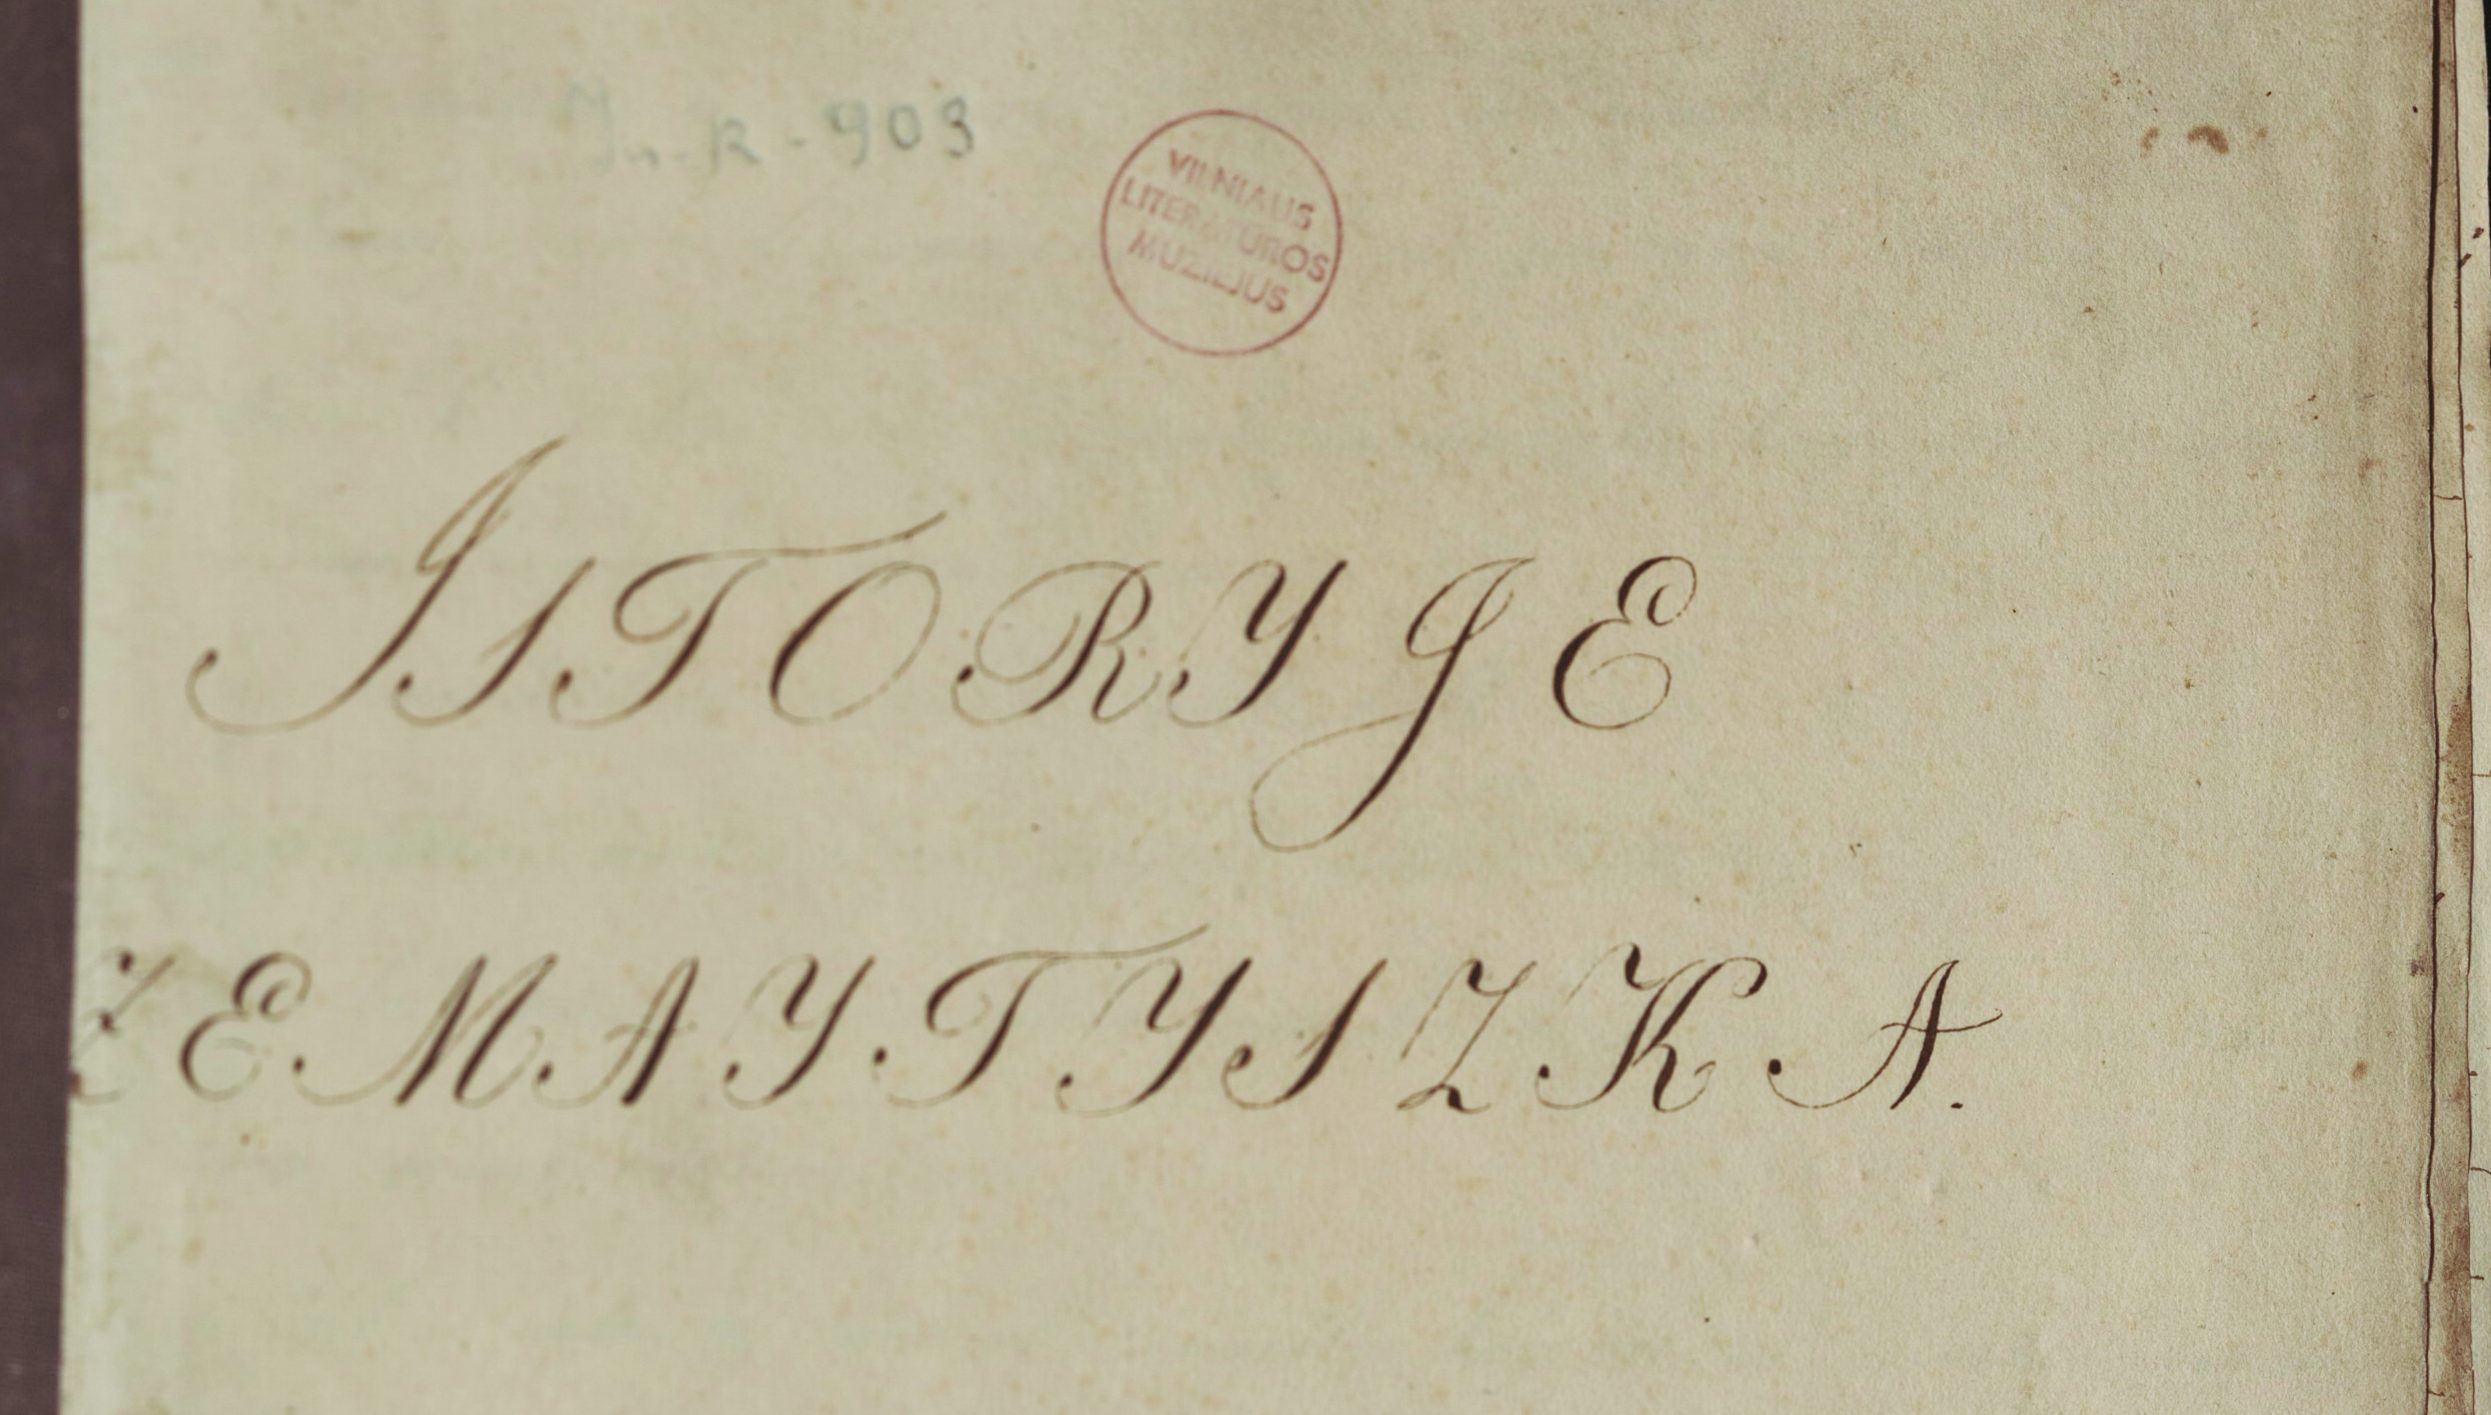 In. R - 903
VILNIAUS
LITERATUROS
MUZIEJUS
ISTORYJE
ZEMAYTYSZKA.